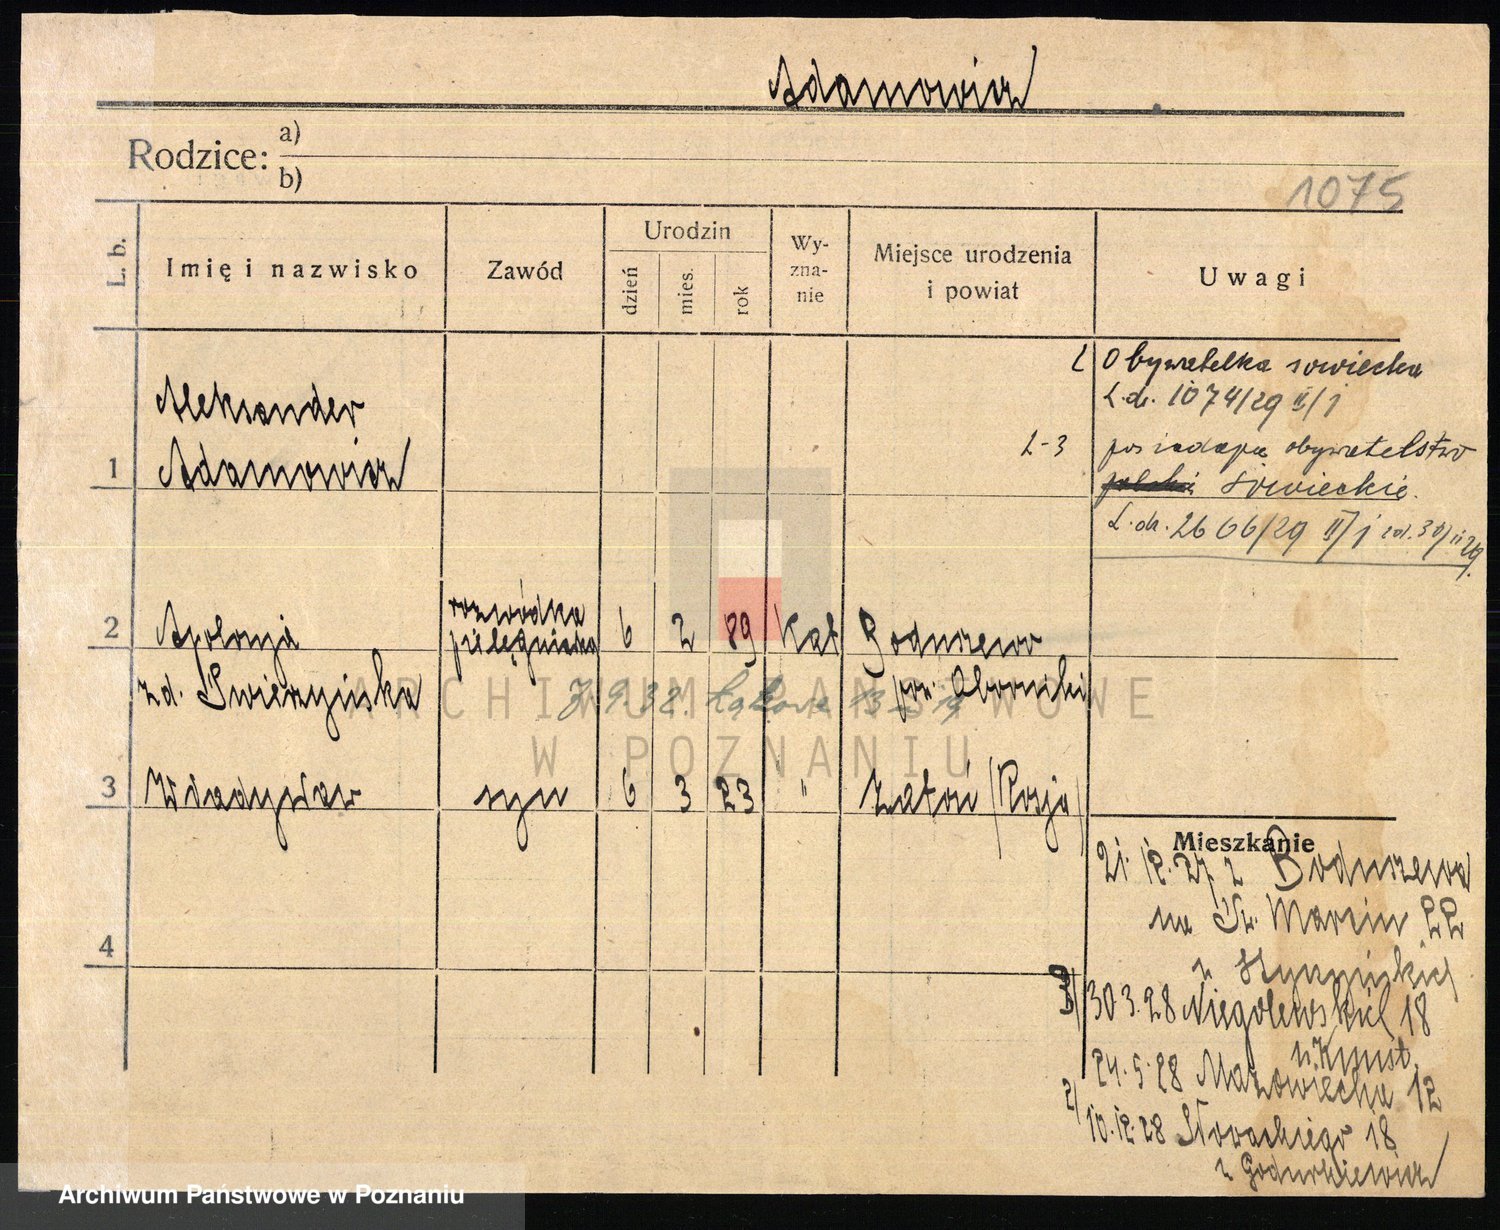 Adamowicz
Rodzice: a)
b)
1075
L. b.
Imię i nazwisko
Zawód
Urodzin
dzień
mies.
rok
Wy-
zna-
nie
Miejsce urodzenia
i powiat
Uwagi
1
Aleksander
Adamowicz
2 Obywatelka sowiecka
L.dz. 1074/29 II/1
2-3 posiadają obywatelstwo
polskie sowieckie.
L.dz. 2606/29 II/1
2
Apolonja
zd. Swierzyńska
rozwódka
pielęgniarka
6 2 89 Kat
Boduszewo
pow. Oborniki
7.9.32. Łąkowa 13
3 Władysław syn 6 3 23 " Zatoń (Rosja)
4
Mieszkanie
21.12.27 z Boduszewa
na Św. Marcin 22
3/ 30.3.28 Niegolewskich 18
24.5.28 Mazowiecka 12
2/ 10.12.28 Słowackiego 18
ARCHIWUM PAŃSTWOWE
W POZNANIU
Archiwum Państwowe w Poznaniu